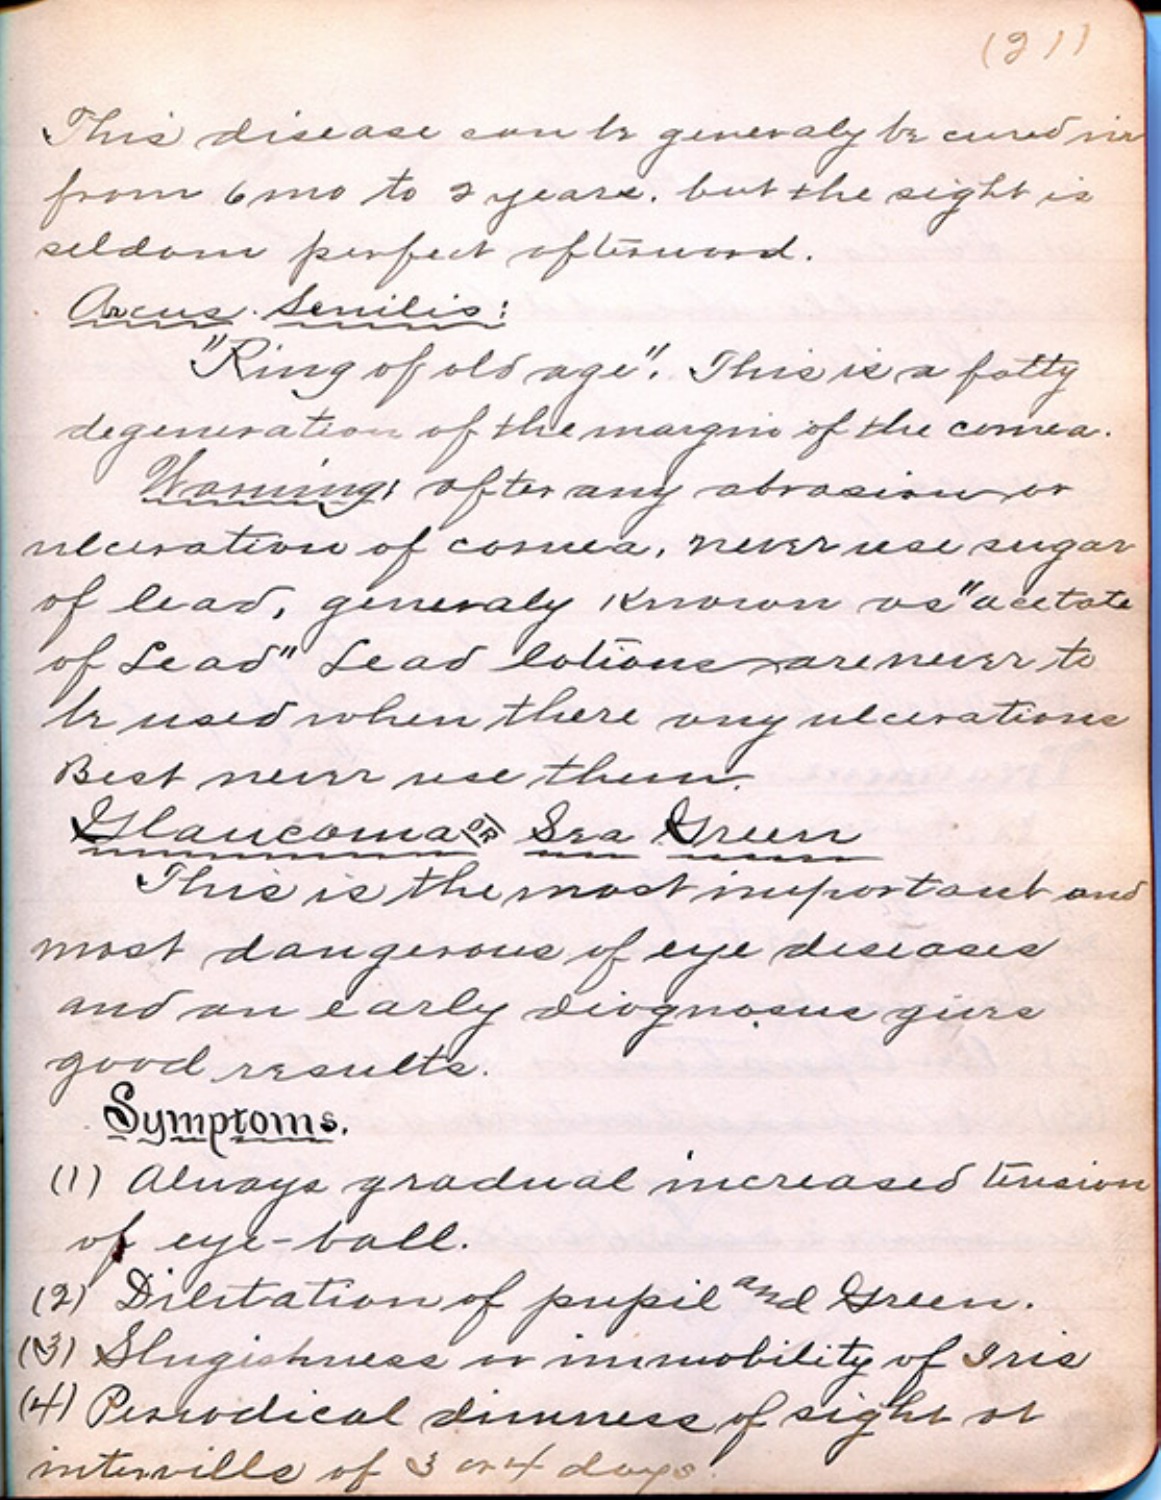 (21)
This disease can be generaly be cured in
from 6 mo to 2 years. but the sight is
seldom perfect afterward.
Arcus Senilis:
"Ring of old age". This is a fatty
degeneration of the margin of the cornea.
Warning: after any abrasion or
ulceration of cornea, never use sugar
of lead, generaly known as "acetate
of Lead" Lead lotions are never to
be used when there any ulcerations
Best never use them.
Glaucoma OR Sea Green
This is the most important and
most dangerous of eye diseases
and an early diagnosus gives
good results.
Symptoms.
(1) Always gradual increased tension
of eye-ball.
(2) Diletation of pupil and Green.
(3) Slugishness or immobility of Iris
(4) Periodical dimness of sight at
intervills of 3 or 4 days.